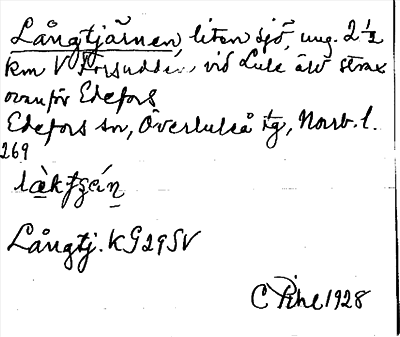 Långtjärnen, liten sjö, ung. 2 1/2
km V Forsudden, vid Lule älv strax
ovanför Edefors
Edefors sn, Överluleå tg, Norrb. l.
269
Långtj. KG29SV
C Pihl 1928